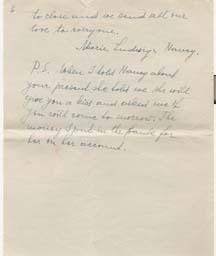 6
to close and we send all our
love to everyone.
Marie Ludwig Nancy.
P.S. When I told Nancy about
your present she told me she will
give you a kiss and asked me if
you will come to morrow. The
money I put in the bank for
her on her account.